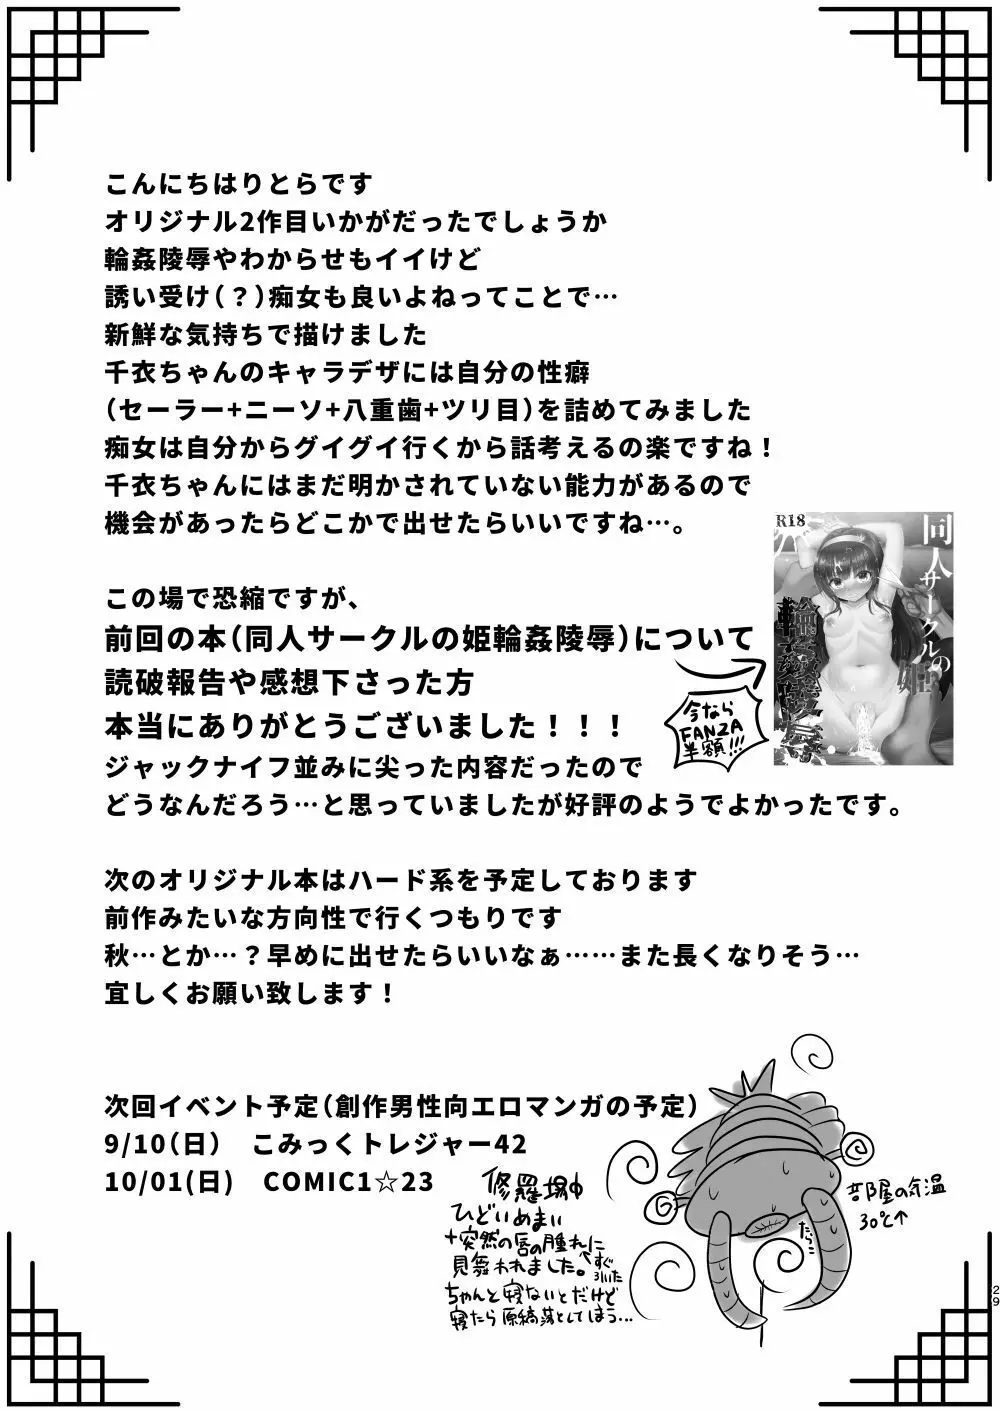 こんにちはりとらです
オリジナル2作目いかがだったでしょうか
輪姦陵辱やわからせもイイけど
誘い受け（？）痴女も良いよねってことで…
新鮮な気持ちで描けました
千衣ちゃんのキャラデザには自分の性癖
（セーラー+ニーソ+八重歯+ツリ目）を詰めてみました
痴女は自分からグイグイ行くから話考えるの楽ですね！
千衣ちゃんにはまだ明かされていない能力があるので
機会があったらどこかで出せたらいいですね…。
R18
同人サークルの姫
輪姦陵辱
この場で恐縮ですが、
前回の本（同人サークルの姫輪姦陵辱）について
読破報告や感想下さった方
本当にありがとうございました！！！
今なら
FANZA
半額!!!
ジャックナイフ並みに尖った内容だったので
どうなんだろう…と思っていましたが好評のようでよかったです。
次のオリジナル本はハード系を予定しております
前作みたいな方向性で行くつもりです
秋…とか…？早めに出せたらいいなぁ……また長くなりそう…
宜しくお願い致します！
次回イベント予定（創作男性向エロマンガの予定）
9/10（日）　こみっくトレジャー42
10/01(日)　COMIC1☆23
修羅場中
ひどいめまい
+突然の唇の腫れに
見舞われました。
すぐ
引いた
ちゃんと寝ないとだけど
寝たら原稿落としてしまう…
たらこ
部屋の気温
30℃↑
29